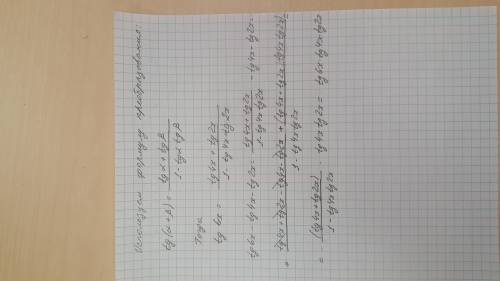 Используем формулу преобразования:
tg(α+β) = (tgα + tgβ)/(1 - tgα tgβ)
Тогда
tg 6x = (tg4x + tg2x)/(1 - tg4x tg2x)
tg6x - tg4x - tg2x = (tg4x + tg2x)/(1 - tg4x tg2x) - tg4x - tg2x =
= (tg4x + tg2x - tg4x - tg2x + (tg4x + tg2x)(tg4x tg2x))/(1 - tg4x tg2x) =
= (tg4x + tg2x)/(1 - tg4x tg2x) · tg4x tg2x = tg6x tg4x tg2x